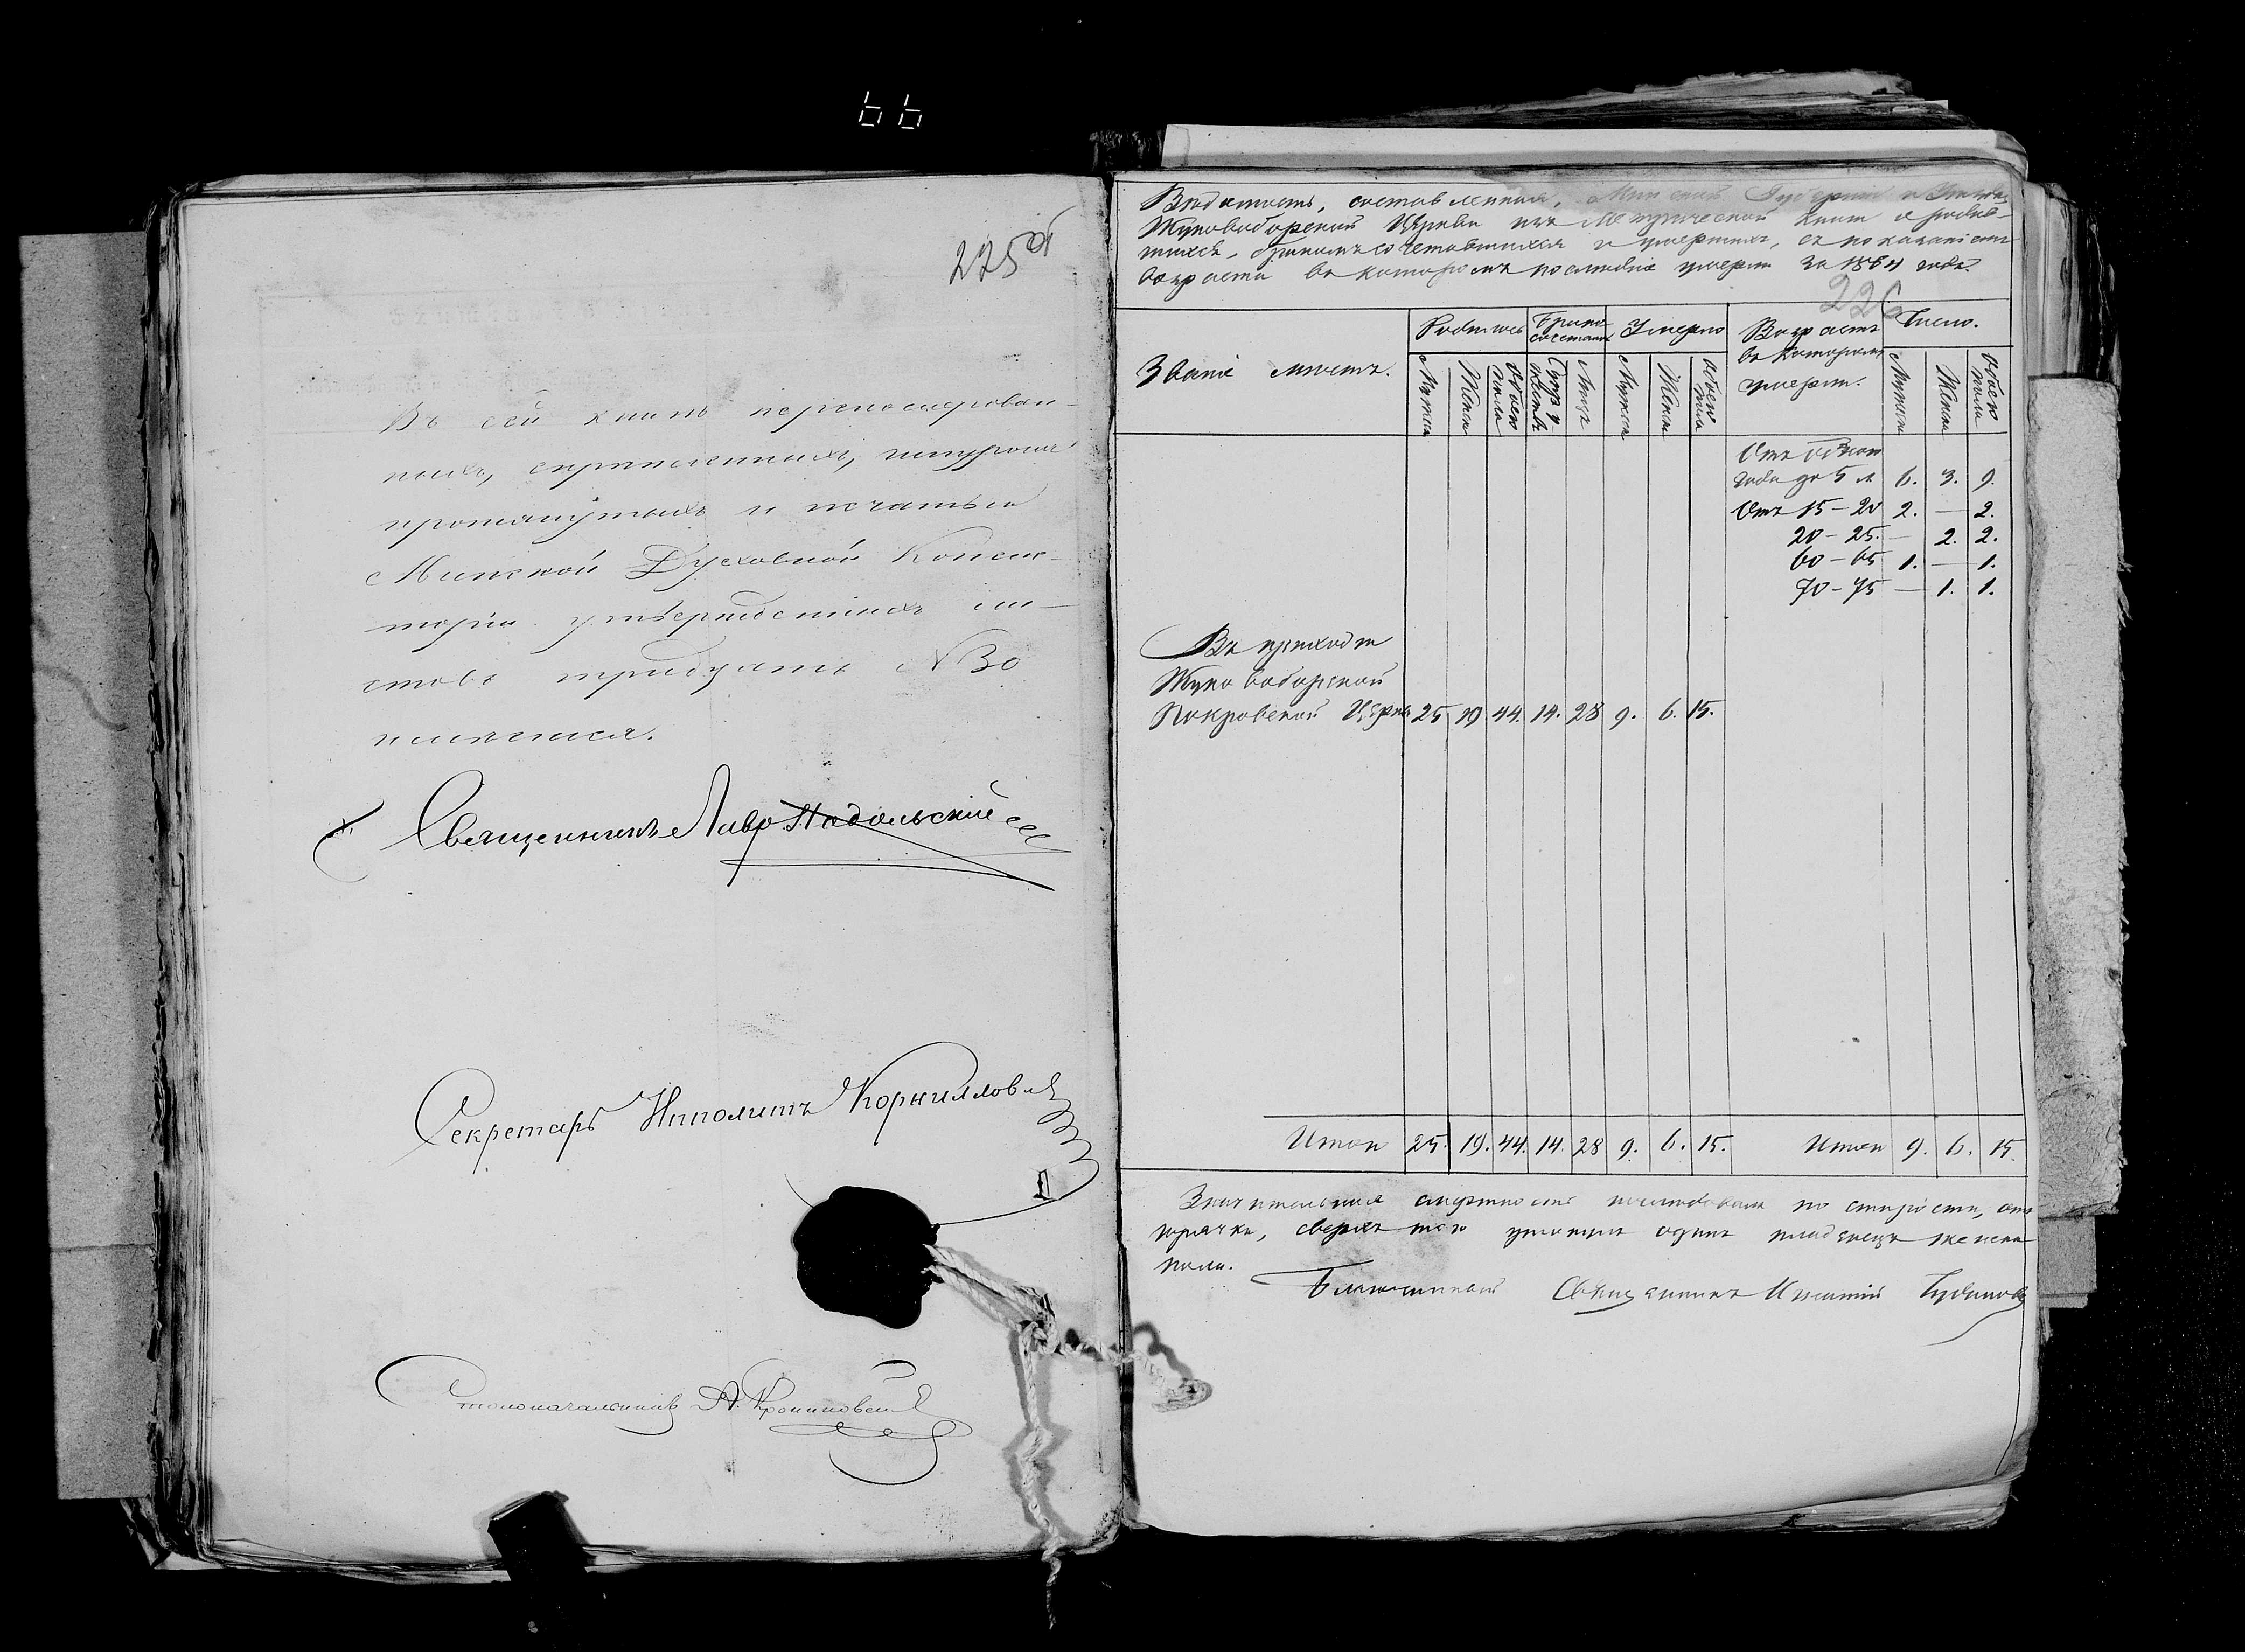 66
225 об
Въ сей книгѣ перенумерован-
ныхъ, скрѣпленныхъ, шнуромъ
протянутыхъ и печатью
Минской Духовной Консис-
торіи утвержденныхъ ли-
стовъ тридцать N 30
имѣется.
Священникъ Лавр. Надольскій
Секретарь Ипполитъ Корнилловъ
Столоначальникъ А.
Вѣдомость, составленная, Минской Губерніи и Уѣзда
Жуковоборской Церкви изъ Метрической книги о родив-
шихся, бракомъ сочетавшихся и умершихъ, съ показаніемъ
возраста въ которомъ послѣдніе умерли за 1864 годъ.
226
Званіе мѣстъ. Родилось Брако сочетал. Умерло Возрастъ въ которомъ умерли. Число.
Мужска Женска Обоего пола Супружествъ Лицъ Мужска Женска Обоего пола Мужска Женска Обоего пола
Отъ одного
года до 5 л 6. 3. 9.
Отъ 15 - 20 2. — 2.
20 - 25. — 2. 2.
60 - 65 1. — 1.
70 - 75 — 1. 1.
Въ приходѣ
Жуковоборской
Покровской Церкв 25 19. 44. 14. 28 9. 6. 15.
Итого 25. 19. 44. 14. 28 9. 6. 15. Итого 9. 6. 15.
Значительная смертность послѣдовала по старости, отъ
горячки, сверхъ того одинъ младенецъ женска
пола.
Благочинный Священникъ